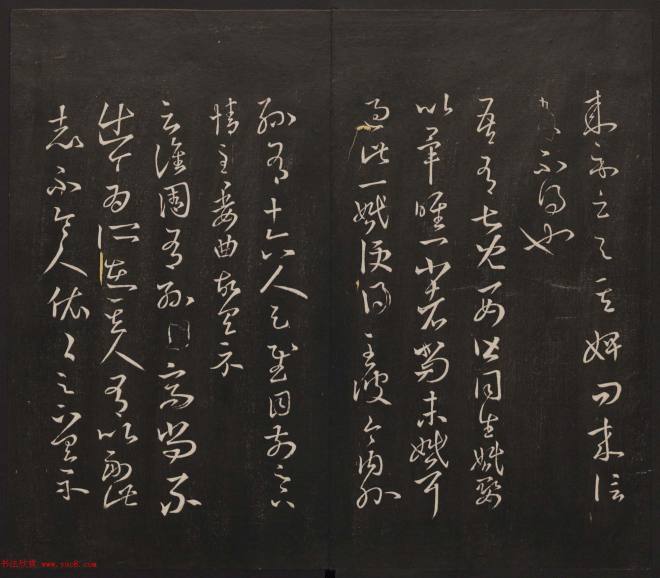 來示云與其婢問來信
不得也
吾有七兒一女皆同生婚娶
以畢唯一小者尚未婚耳
過此一婚便得至彼今內外孫
孫有十六人足慰目前足下
情至委曲故具示
云譙周有孫高尚不
出今為所在其人有以副此
志不令人依依足下具示
书法欣赏 www.yac8.com